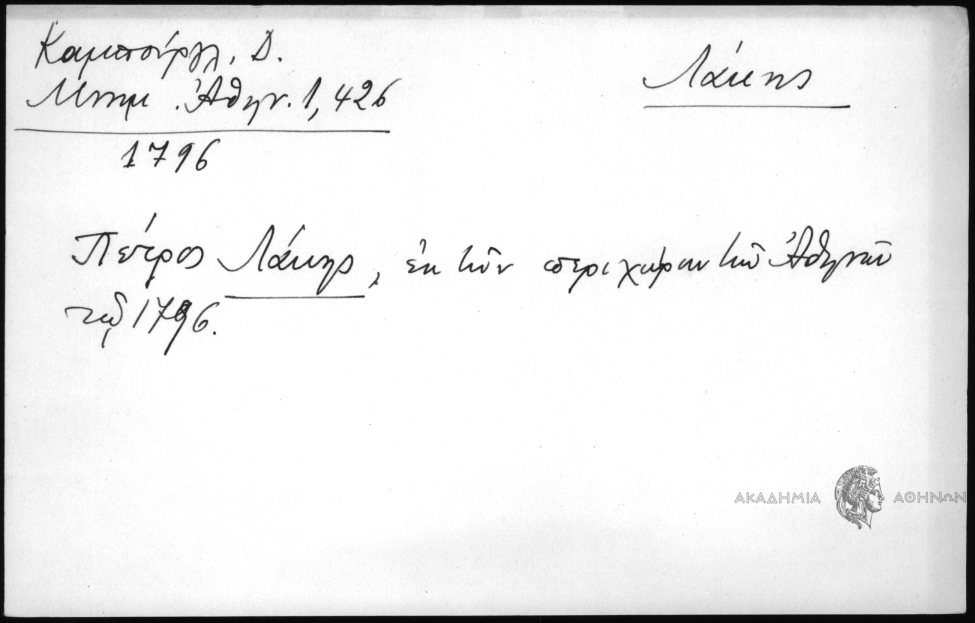 Καμπούργλ. Δ.
Μνημ. Ἀθην. 1, 426
1796
Λάκης
Πέτρος Λάκης, ἐκ τῶν περιχώρων τῶν Ἀθηνῶν
τῷ 1796.
ΑΚΑΔΗΜΙΑ ΑΘΗΝΩΝ